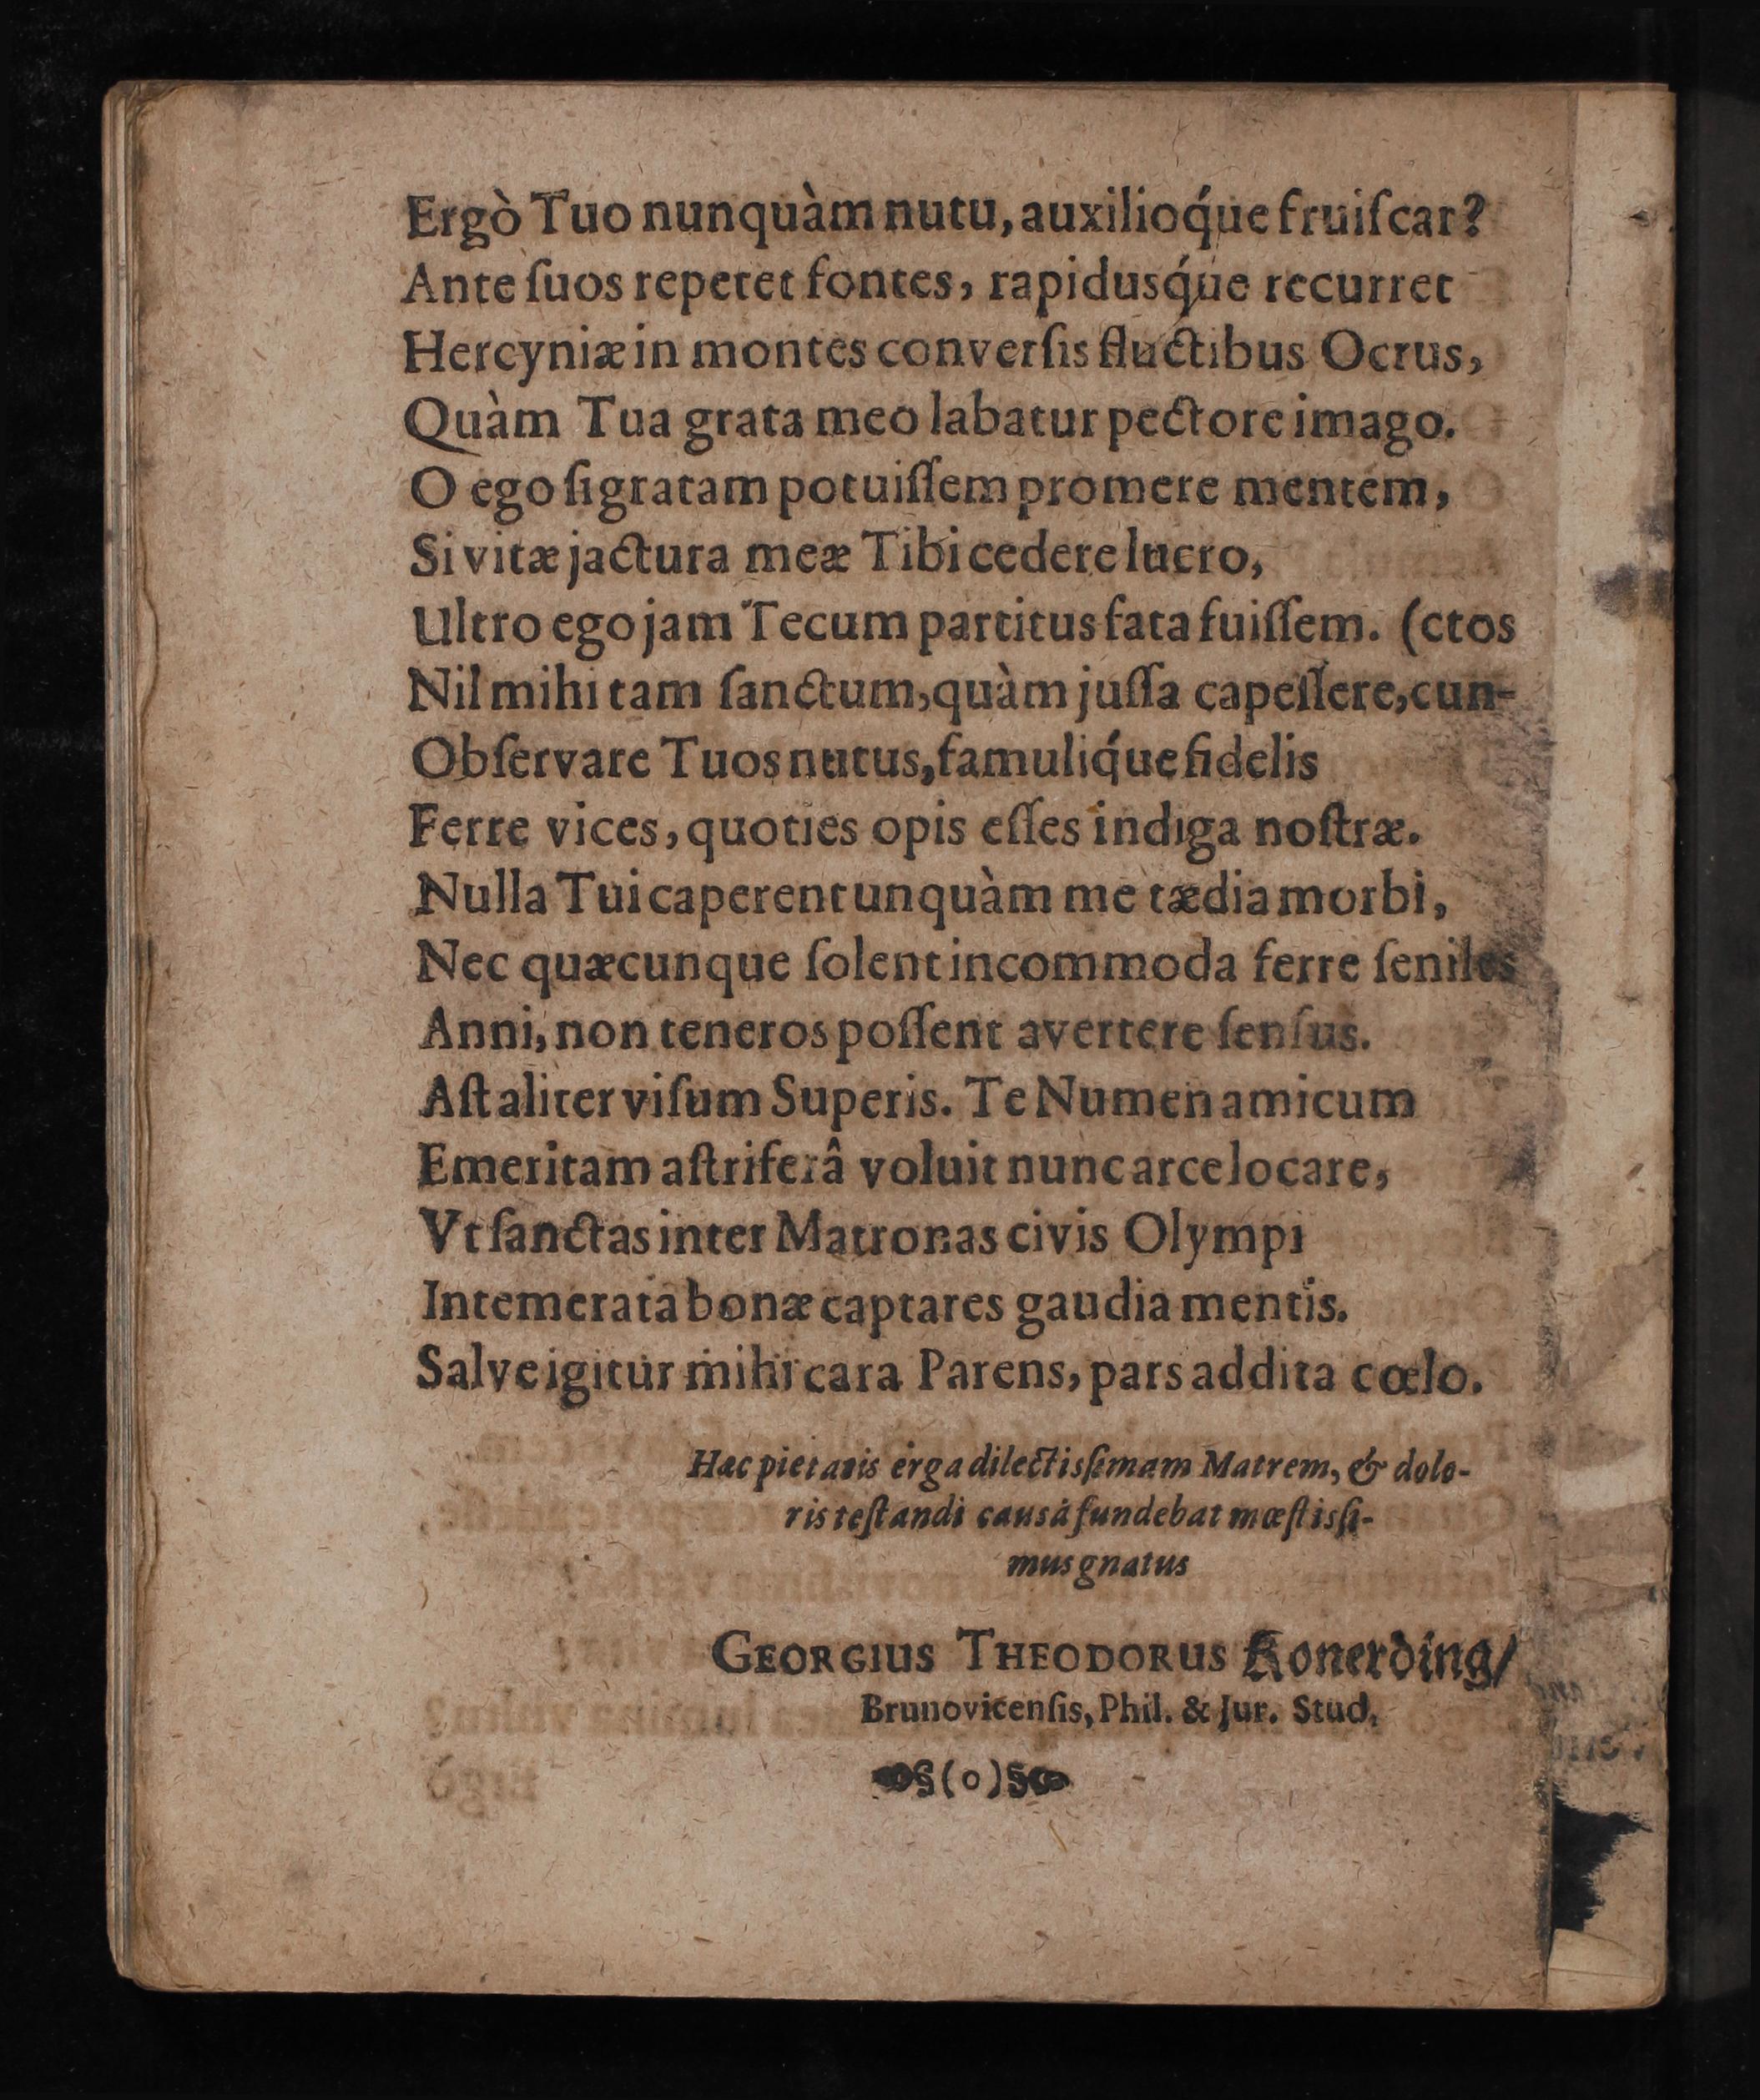 Ergò Tuo nunquàm nutu, auxilioq́ue fruiſcar?
Ante ſuos repetet fontes, rapidusq́ue recurret
Hercyniæ in montes converſis fluctibus Ocrus,
Quàm Tua grata meo labatur pectore imago.
O ego ſi gratam potuiſſem promere mentem,
Si vitæ jactura meæ Tibi cedere lucro,
Ultro ego jam Tecum partitus fata fuiſſem. (ctos
Nil mihi tam ſanctum, quàm juſſa capeſſere, cun-
Obſervare Tuos nutus, famuliq́ue fidelis
Ferre vices, quoties opis eſſes indiga noſtræ.
Nulla Tui caperent unquàm me tædia morbi,
Nec quæcunque ſolent incommoda ferre ſeniles
Anni, non teneros poſſent avertere ſenſus.
Aſt aliter viſum Superis. Te Numen amicum
Emeritam aſtriferâ voluit nunc arce locare,
Vt ſanctas inter Matronas civis Olympi
Intemerata bonæ captares gaudia mentis.
Salve igitur mihi cara Parens, pars addita cœlo.
Hac pietatis erga dilectisſimam Matrem, & dolo-
ris teſtandi causâ fundebat mœſtisſi-
mus gnatus
GEORGIUS THEODORUS Konerding/
Brunovicenſis, Phil. & Jur. Stud.
§(o)§